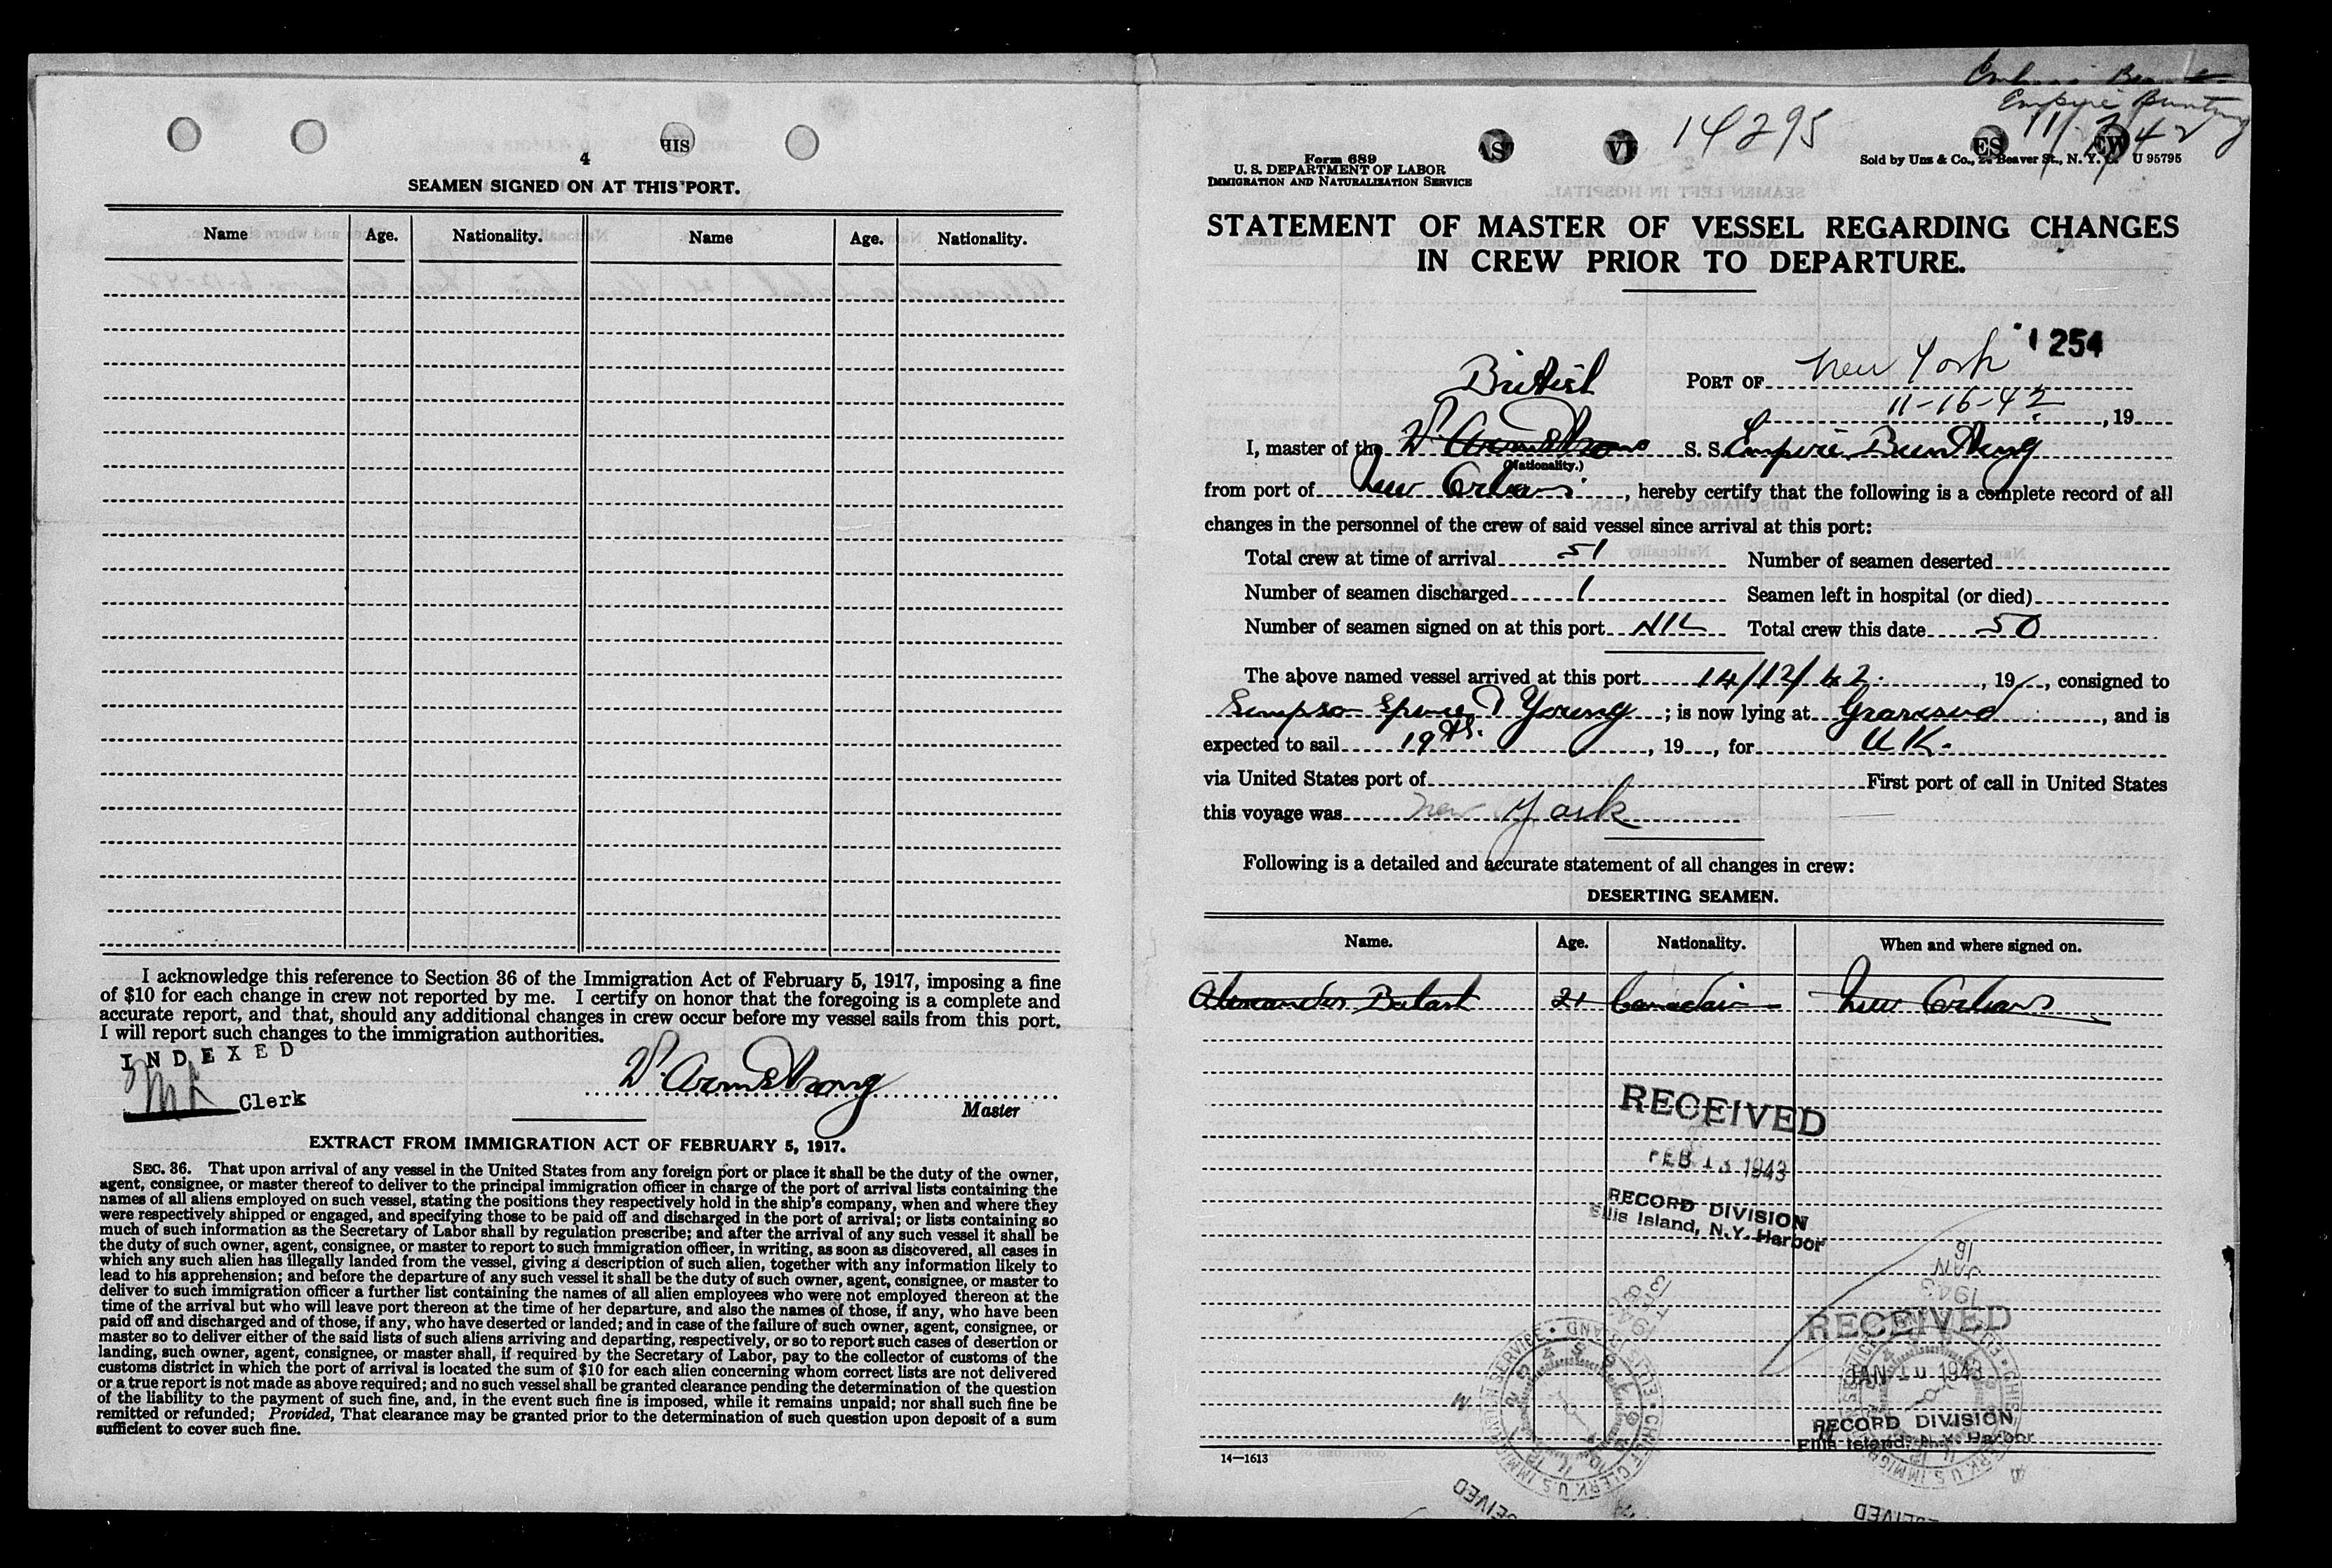 4
SEAMEN SIGNED ON AT THIS PORT.
Name Age. Nationality. Name Age. Nationality.
I acknowledge this reference to Section 36 of the Immigration Act of February 5, 1917, imposing a fine
of $10 for each change in crew not reported by me. I certify on honor that the foregoing is a complete and
accurate report, and that, should any additional changes in crew occur before my vessel sails from this port,
I will report such changes to the immigration authorities.
INDEXED
Clerk
W. Armstrong
Master
EXTRACT FROM IMMIGRATION ACT OF FEBRUARY 5, 1917.
SEC. 36. That upon arrival of any vessel in the United States from any foreign port or place it shall be the duty of the owner,
agent, consignee, or master thereof to deliver to the principal immigration officer in charge of the port of arrival lists containing the
names of all aliens employed on such vessel, stating the positions they respectively hold in the ship's company, when and where they
were respectively shipped or engaged, and specifying those to be paid off and discharged in the port of arrival; or lists containing so
much of such information as the Secretary of Labor shall by regulation prescribe; and after the arrival of any such vessel it shall be
the duty of such owner, agent, consignee, or master to report to such immigration officer, in writing, as soon as discovered, all cases in
which any such alien has illegally landed from the vessel, giving a description of such alien, together with any information likely to
lead to his apprehension; and before the departure of any such vessel it shall be the duty of such owner, agent, consignee, or master to
deliver to such immigration officer a further list containing the names of all alien employees who were not employed thereon at the
time of the arrival but who will leave port thereon at the time of her departure, and also the names of those, if any, who have been
paid off and discharged and of those, if any, who have deserted or landed; and in case of the failure of such owner, agent, consignee, or
master so to deliver either of the said lists of such aliens arriving and departing, respectively, or so to report such cases of desertion or
landing, such owner, agent, consignee, or master shall, if required by the Secretary of Labor, pay to the collector of customs of the
customs district in which the port of arrival is located the sum of $10 for each alien concerning whom correct lists are not delivered
or a true report is not made as above required; and no such vessel shall be granted clearance pending the determination of the question
of the liability to the payment of such fine, and, in the event such fine is imposed, while it remains unpaid; nor shall such fine be
remitted or refunded; Provided, That clearance may be granted prior to the determination of such question upon deposit of a sum
sufficient to cover such fine.
Empire Bunting
14295
Form 689
U. S. DEPARTMENT OF LABOR
IMMIGRATION AND NATURALIZATION SERVICE
Sold by Uns & Co., Beaver St., N. Y. U 95795
STATEMENT OF MASTER OF VESSEL REGARDING CHANGES
IN CREW PRIOR TO DEPARTURE.
1254
PORT OF New York
British
11-16-42, 19
I, master of the W. Armstrong S. S. Empire Bunting
(Nationality.)
from port of New Orleans, hereby certify that the following is a complete record of all
changes in the personnel of the crew of said vessel since arrival at this port:
Total crew at time of arrival 51 Number of seamen deserted
Number of seamen discharged 1 Seamen left in hospital (or died)
Number of seamen signed on at this port NIL Total crew this date 50
The above named vessel arrived at this port 14/12/42, 19, consigned to
Simpson Spence & Young; is now lying at Gravesend, and is
expected to sail 19th., 19, for U K.
via United States port of First port of call in United States
this voyage was New York
Following is a detailed and accurate statement of all changes in crew:
DESERTING SEAMEN.
Name. Age. Nationality. When and where signed on.
Alexander Balast 21 Canadian New Orleans
RECEIVED
FEB 13 1943
RECORD DIVISION
Ellis Island, N.Y. Harbor
16
JAN
1943
RECEIVED
JAN 1943
RECORD DIVISION
Ellis Island, N.Y. Harbor
14—1613